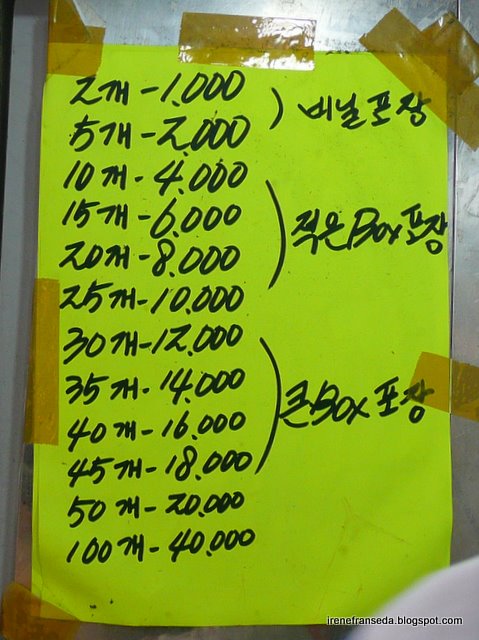 2개-1.000
5개-2.000
비닐포장
10개-4.000
15개-6.000
20개-8.000
25개-10.000
적은Box포장
30개-12.000
35개-14.000
40개-16.000
45개-18.000
큰Box포장
50개-20.000
100개-40.000
irenefranseda.blogspot.com